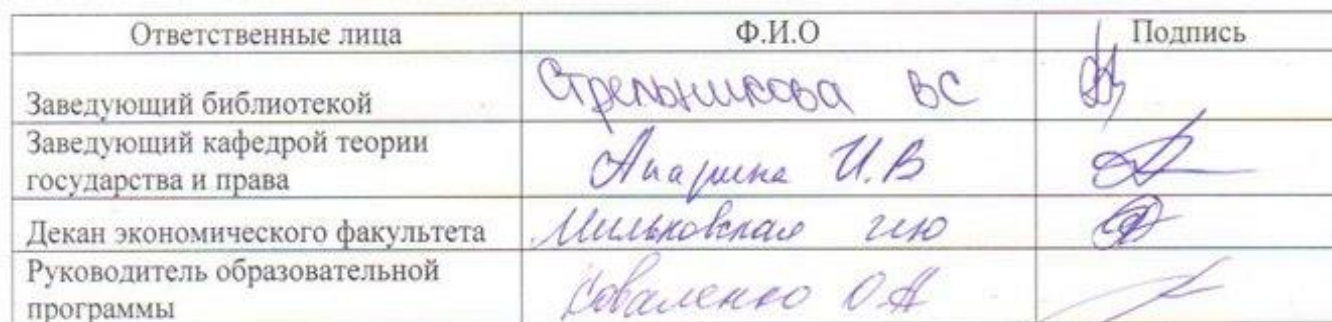 Ответственные лица Ф.И.О Подпись
Заведующий библиотекой Стрельникова ВС
Заведующий кафедрой теории
государства и права Апарина И.В
Декан экономического факультета Мильковская
Руководитель образовательной
программы Коваленко О.А